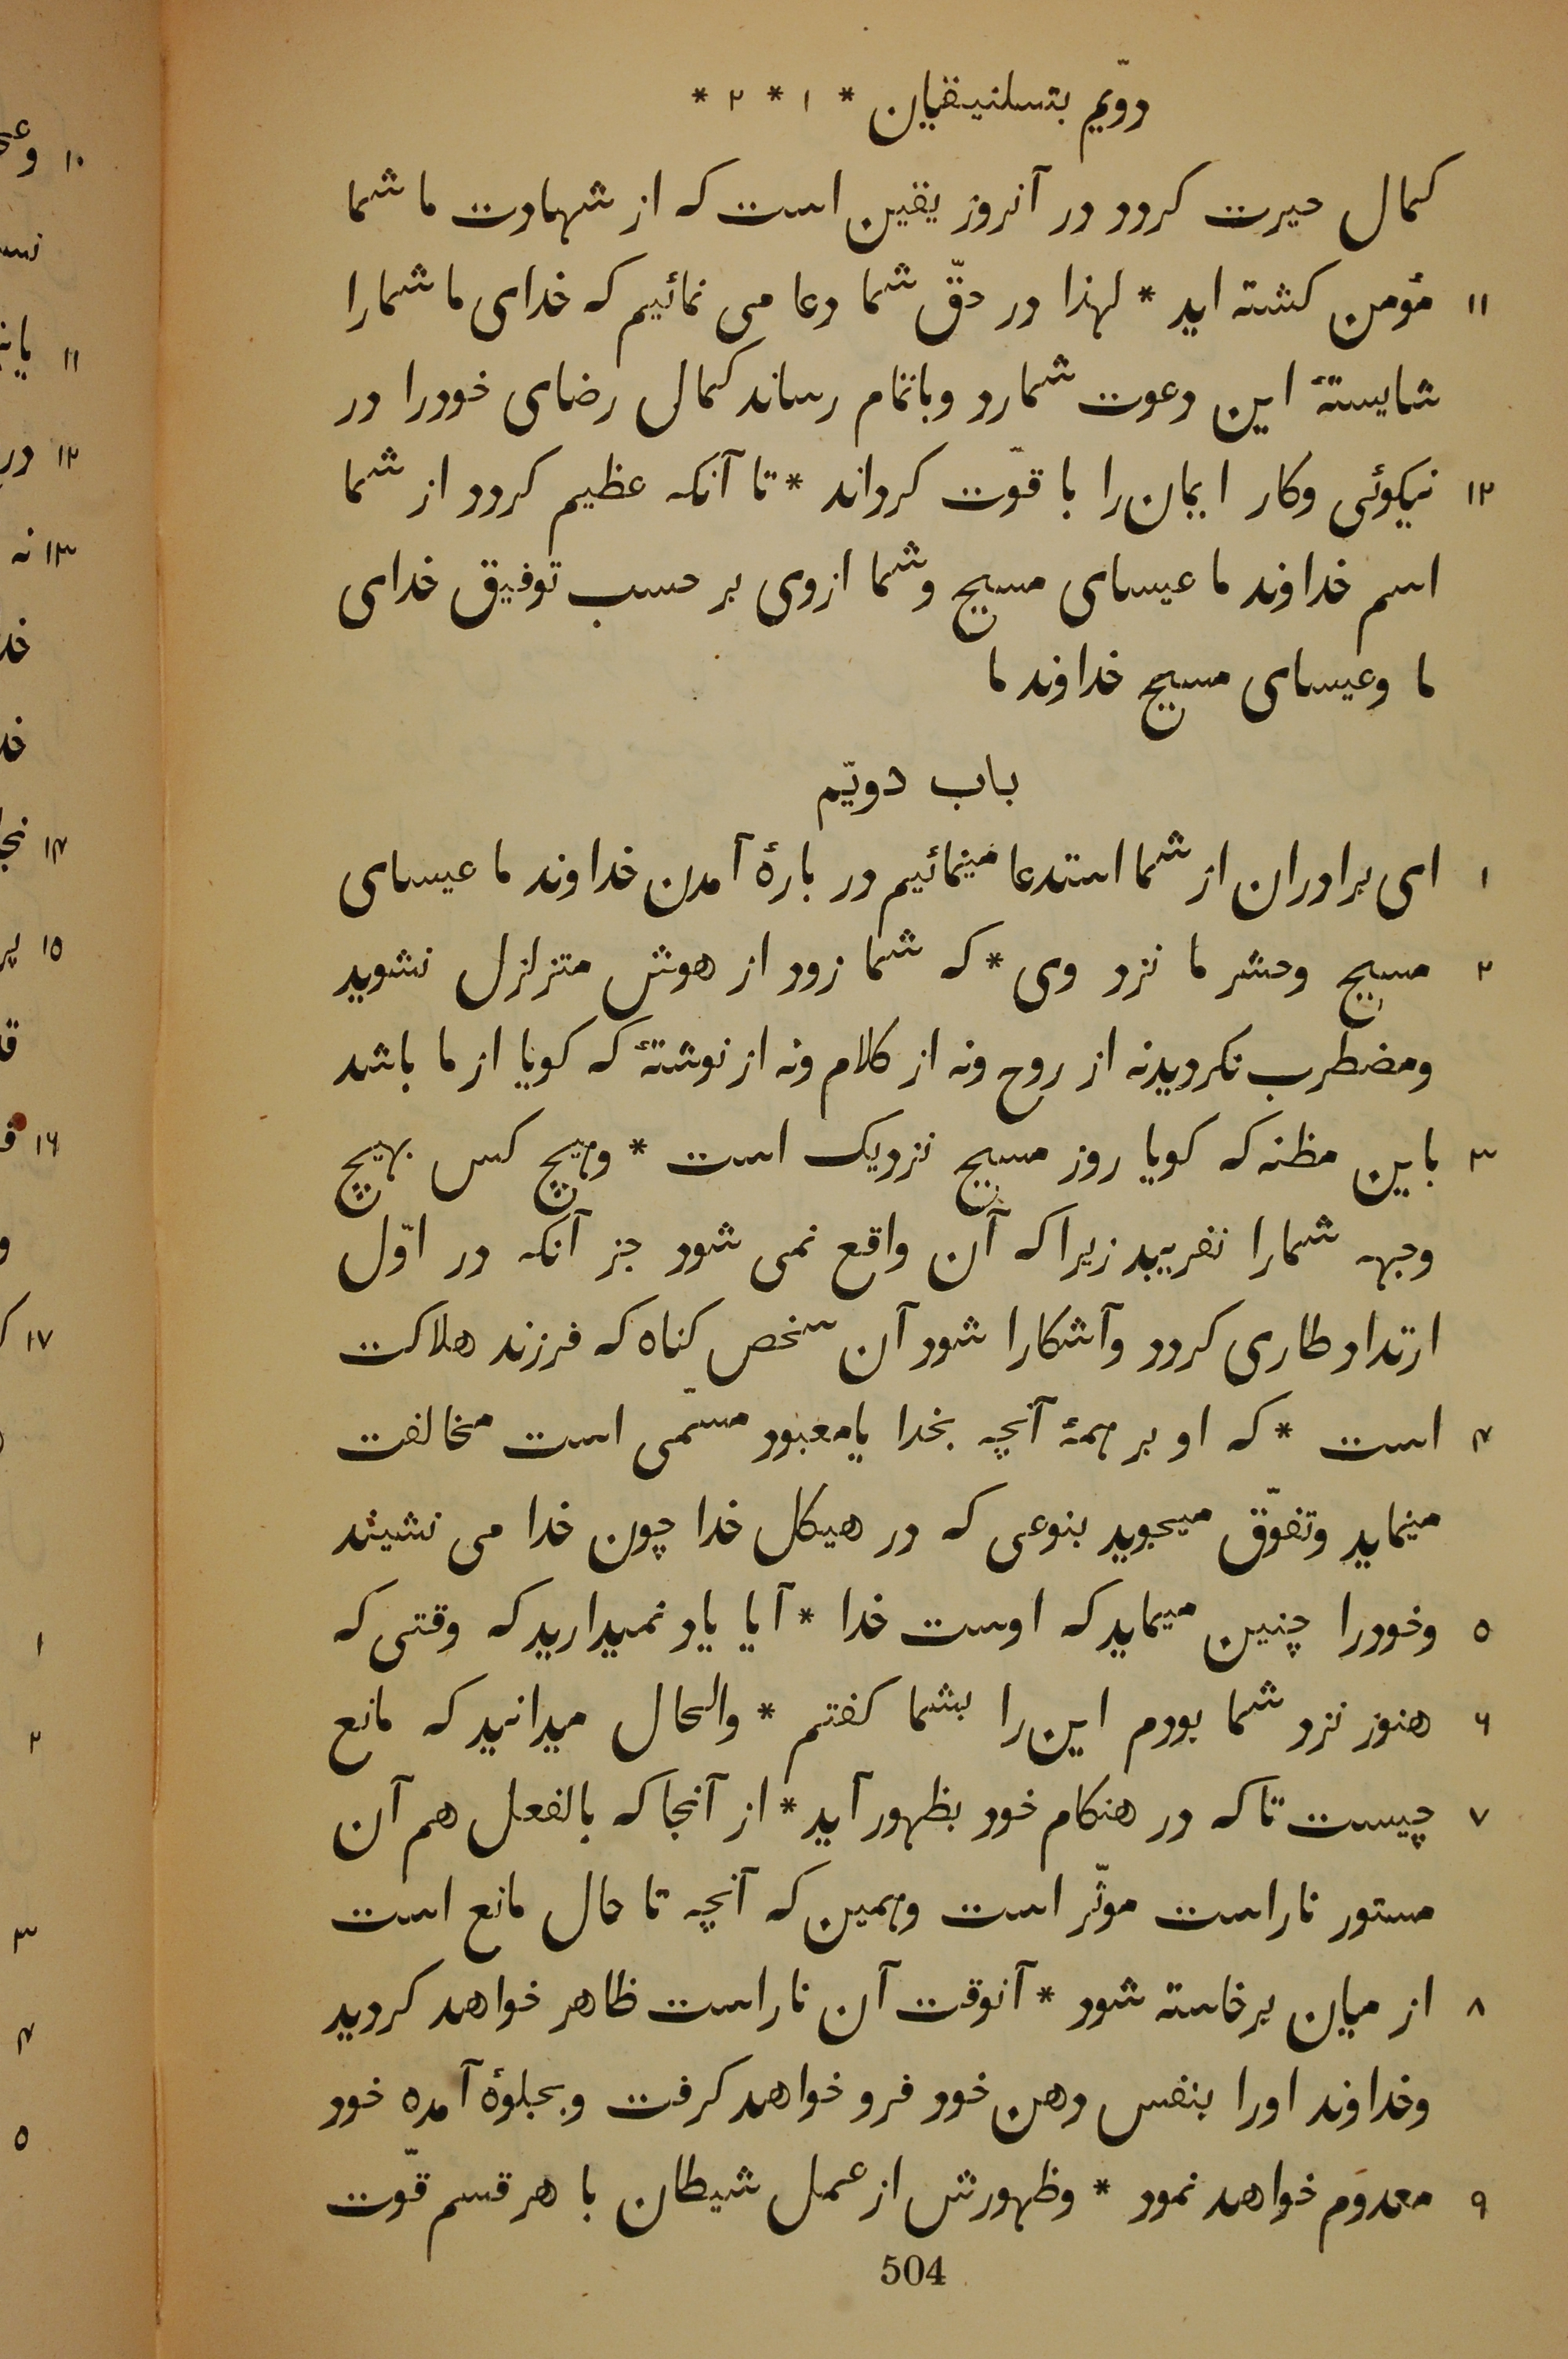 دویّم بتسلنیقیان * ۱ * ۲ *
کمال حیرت کردد در آنروز یقین است که از شهادت ما شما
۱۱ مؤمن کشته اید * لهذا در حقّ شما دعا می نمائیم که خدای ما شما را
شایستهٔ این دعوت شمارد وباتمام رساند کمال رضای خودرا در
۱۲ نیکوئی وکار ایمان را با قوّت کرداند * تا آنکه عظیم کردد از شما
اسم خداوند ما عیسای مسیح وشما ازوی بر حسب توفیق خدای
ما وعیسای مسیح خداوند ما
باب دویّم
۱ ای برادران از شما استدعا مینمائیم در بارهٔ آمدن خداوند ما عیسای
۲ مسیح وحشر ما نزد وی * که شما زود از هوش متزلزل نشوید
ومضطرب نکردیدنه از روح ونه از کلام ونه از نوشتهٔ که کویا از ما باشد
۳ باین مظنه که کویا روز مسیح نزدیک است * وهیچ کس بهیچ
وجهه شمارا نفریبد زیرا که آن واقع نمی شود جز آنکه در اوّل
ارتداد طاری کردد وآشکارا شود آن شخص کناه که فرزند هلاکت
۴ است * که او بر همهٔ آنچه بخدا یا معبود مسمّی است مخالفت
مینماید وتفوّق میجوید بنوعی که در هیکل خدا چون خدا می نشیند
۵ وخودرا چنین میماید که اوست خدا * آیا یاد نمیدارید که وقتی که
۶ هنوز نزد شما بودم این را بشما کفتم * والحال میدانید که مانع
۷ چیست تا که در هنکام خود بظهور آید * از آنجا که بالفعل هم آن
مستور ناراست موثّر است وهمین که آنچه تا حال مانع است
۸ از میان برخاسته شود * آنوقت آن ناراست ظاهر خواهد کردید
وخداوند اورا بنفس دهن خود فرو خواهد کرفت وبجلوهٔ آمده خود
۹ معدوم خواهد نمود * وظهورش از عمل شیطان با هر قسم قوّت
504